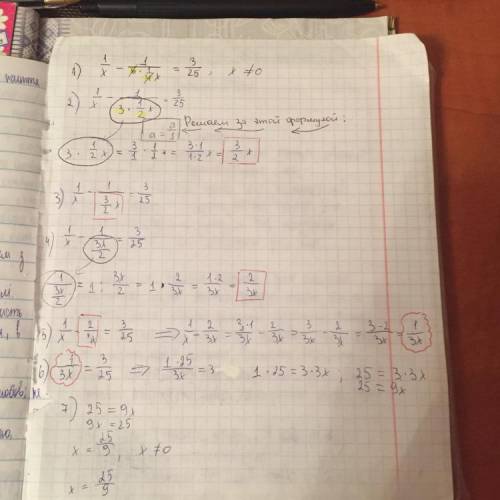 1) 1/x - 1/(3·1/2x) = 3/25, x ≠ 0
2) 1/x - 1/(3·1/2x) = 3/25
Решаем за этой формулой:
a = a/1
3·1/2x = 3/1·1/2x = 3·1/1·2x = 3/2x
3) 1/x - 1/(3/2x) = 3/25
4) 1/x - 1/(3x/2) = 3/25
1/(3x/2) = 1 : 3x/2 = 1·2/3x = 1·2/3x = 2/3x
5) 1/x - 2/3x = 3/25 ⇒ 1/x - 2/3x = 3·1/3x - 2/3x = 3/3x - 2/3x = 3-2/3x = 1/3x
6) 1/3x = 3/25 ⇒ 1·25/3x = 3 1·25 = 3·3x ; 25 = 3·3x
25 = 9x
7) 25 = 9x
9x = 25
x = 25/9, x ≠ 0
x = 25/9